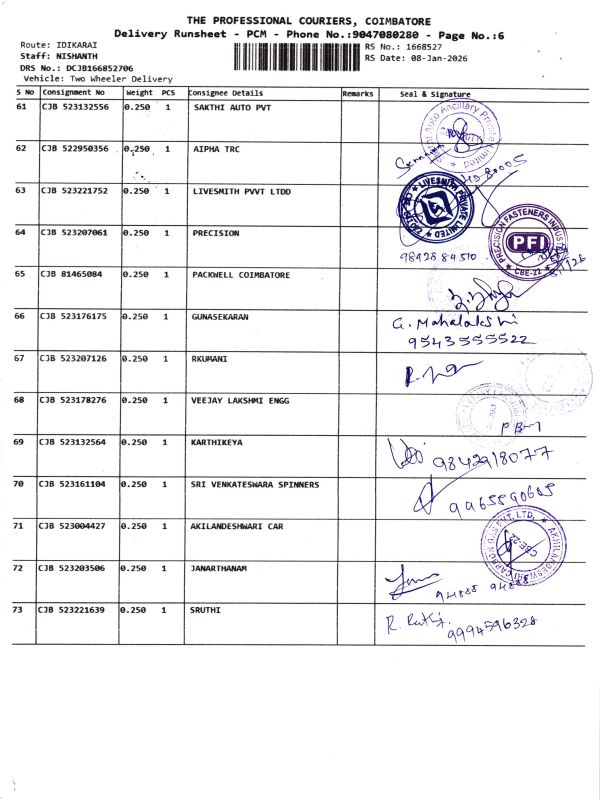 THE PROFESSIONAL COURIERS, COIMBATORE
Delivery Runsheet - PCM - Phone No.:9047080280 - Page No.:6
Route: IDIKARAI
RS No.: 1668527
Staff: NISHANTH
RS Date: 08-Jan-2026
DRS No.: DCJB166852706
Vehicle: Two Wheeler Delivery
S No Consignment No Weight PCS Consignee Details Remarks Seal & Signature
61 CJB 523132556 0.250 1 SAKTHI AUTO PVT
62 CJB 522950356 0.250 1 AIPHA TRC
63 CJB 523221752 0.250 1 LIVESMITH PVVT LTDD
LIVESMITH PRIVATE LIMITED
64 CJB 523207061 0.250 1 PRECISION
PRECISION FASTENERS INDUSTRIES
PFI
CBE-22
9842884510
65 CJB 81465084 0.250 1 PACKWELL COIMBATORE
66 CJB 523176175 0.250 1 GUNASEKARAN
G. Mahalakshi
9543555522
67 CJB 523207126 0.250 1 RKUMANI
68 CJB 523178276 0.250 1 VEEJAY LAKSHMI ENGG
69 CJB 523132564 0.250 1 KARTHIKEYA
9842918077
70 CJB 523161104 0.250 1 SRI VENKATESWARA SPINNERS
9965590605
71 CJB 523004427 0.250 1 AKILANDESHWARI CAR
CBE-22
72 CJB 523203506 0.250 1 JANARTHANAM
94888 94888
73 CJB 523221639 0.250 1 SRUTHI
9994596328